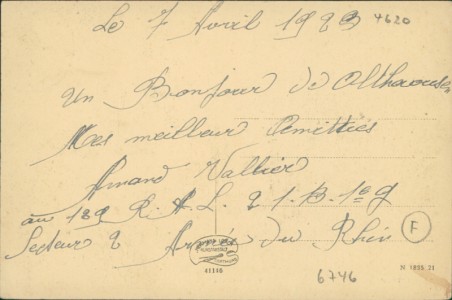 Le 7 Avril 1923 4620
Un Bonjour de Althausen
Mes meilleur Amittiés
Armand Vallier
au 189 R. A. L. 21. B. 1e g
Secteur 2 Armée du Rhin F
41146
6746
N 1935/21